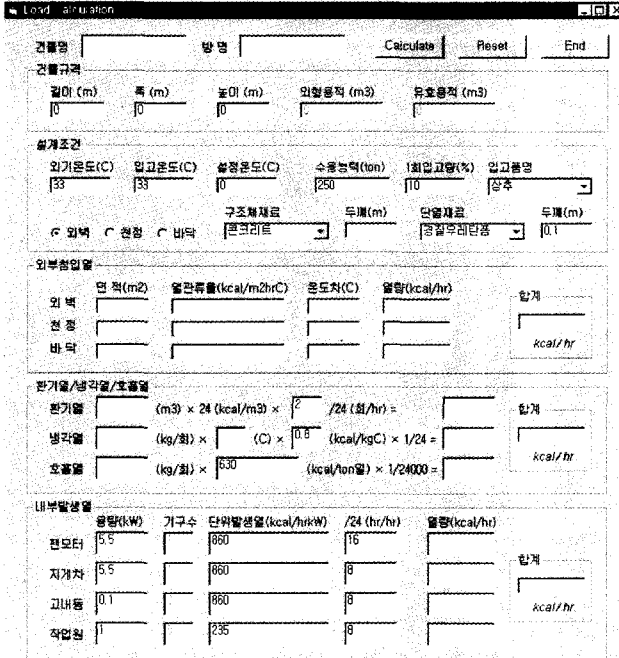 Load Calculation
건물명 방 명 Calculate Reset End
건물규격
길이 (m) 폭 (m) 높이 (m) 외형용적 (m3) 유효용적 (m3)
0 0 0 0 0
설계조건
외기온도(C) 입고온도(C) 설정온도(C) 수용능력(ton) 1회입고량(%) 입고품명
33 33 0 250 10 상추
구조체재료 두께(m) 단열재료 두께(m)
외벽 천정 바닥 콘크리트 경질우레탄폼 0.1
외부침입열
면 적(m2) 열관류율(kcal/m2hrC) 온도차(C) 열량(kcal/hr)
외 벽
천 정
바 닥
합계
kcal/hr
환기열/냉각열/호흡열
환기열 (m3) × 24 (kcal/m3) × 2 /24 (회/hr) =
냉각열 (kg/회) × (C) × 0.8 (kcal/kgC) × 1/24 =
호흡열 (kg/회) × 630 (kcal/ton일) × 1/24000 =
합계
kcal/hr
내부발생열
용량(kW) 기구수 단위발생열(kcal/hrkW) /24 (hr/hr) 열량(kcal/hr)
팬모터 5.5 860 16
지게차 5.5 860 8
고내등 0.1 860 8
작업원 1 235 8
합계
kcal/hr